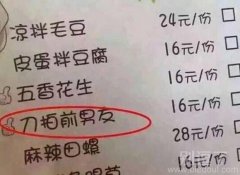 凉拌毛豆 24元/份
皮蛋拌豆腐 16元/份
五香花生 16元/份
刀拍前男友 16元/份
麻辣田螺 28元/份
16元/份